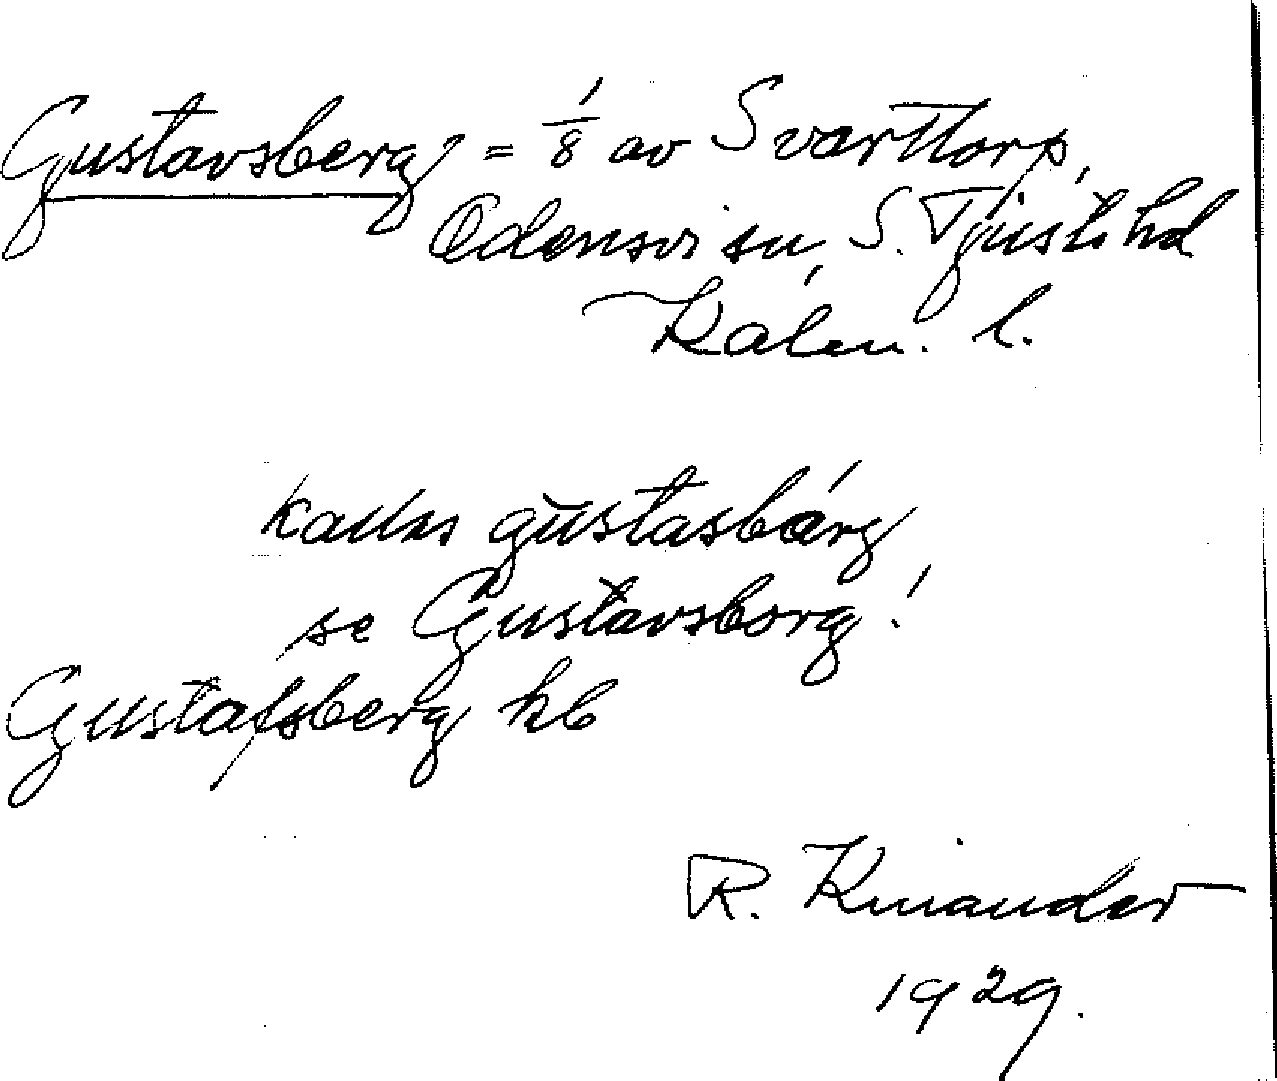 Gustavsberg = 1/8 av Svarttorp,
Odensvi sn, S. Tjusts hd
Kalm. l.
kallas gustasbärg
se Gustavsborg!
Gustafsberg kb
R. Kinander
1929.